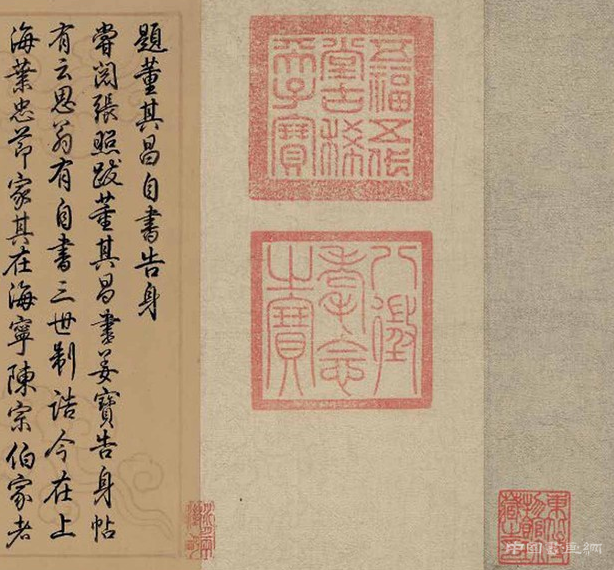 五福五代
堂古稀
天子寶
八徵
耄念
之寶
題董其昌自書告身
嘗閱張照跋董其昌書姜寶告身帖
有云思翁有自書三世制誥今在上
海葉忠節家其在海寧陳宗伯家者
東北博
物館珍
藏之印